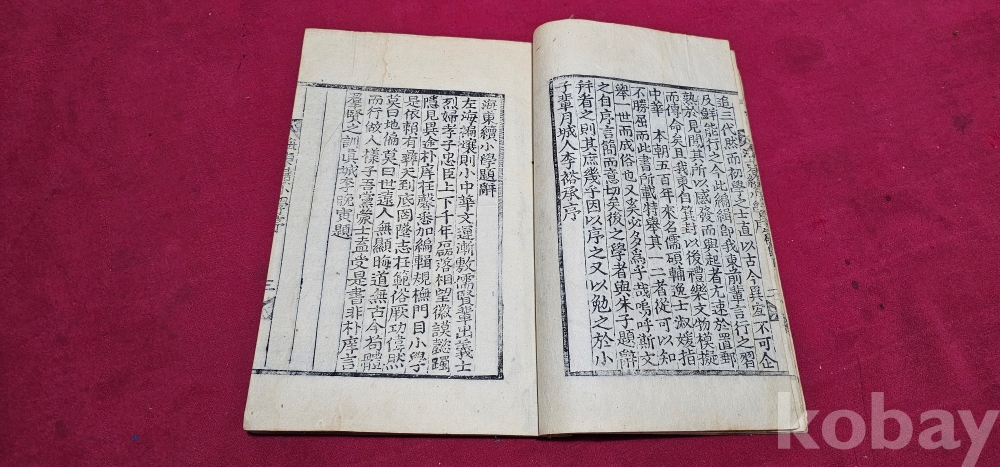 追三代然而初學之士直以古今異宜不可企
及鮮能行之今此編緝即我東前輩言行之習
熟於見聞其所以感發而興起者尤速於置郵
而傳命矣且我東自箕封以後禮樂文物模擬
中華 本朝五百年來名儒碩輔逸士淑媛指
不勝屈而此書所載特舉其一二者從可以知
舉一世而成俗也又奚必多爲乎哉嗚呼斯文
之自序言簡而意切矣後之學者與朱子題辭
幷看之則其庶幾乎因以序之又以勉之於小
子輩月城人李承序
海東續小學題辭
左海瀚灢則小中華文運漸敷儒賢輩出義士
烈婦孝子忠臣上下千年磊落相望徽謨懿躅
隱見異途朴庠在馨悉加編輯規橅門目小學
是依賴有彝天到底罔墜志在範俗厥功偉然
莫曰地偏莫曰世遠人無顯晦道無古今苟體
而行做人樣子吾黨蒙士盍受是書非朴庠言
羣賢之訓眞城李晩寅題
kobay